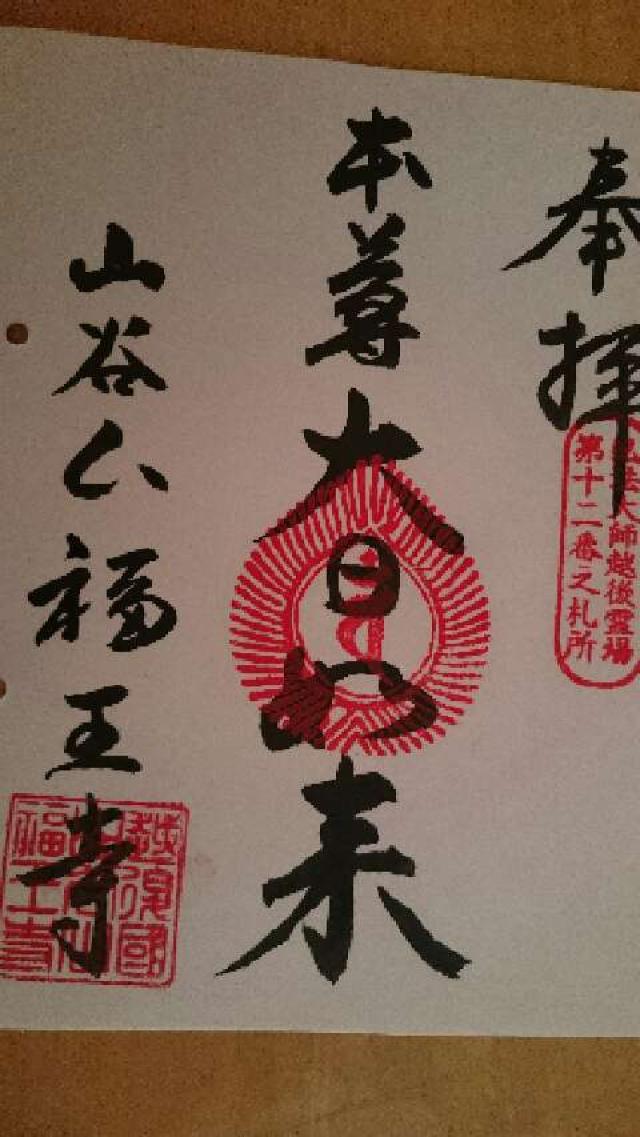 奉拝
弘法大師越後霊場
第十二番之札所
本尊大日如来
山谷仏福王寺
越後國
福王寺